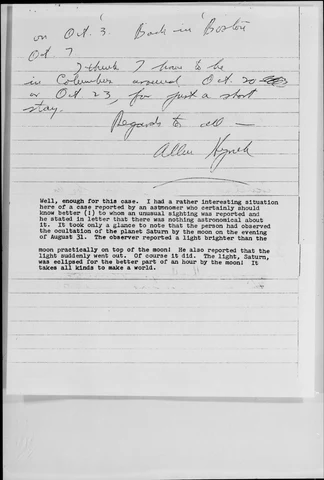 on Oct. 3. Back in Boston
Oct 7
I think I have to be
in Columbus around Oct. 20
or Oct 23, for just a short
stay.
Regards to all —
Allen Hynek
Well, enough for this case. I had a rather interesting situation
here of a case reported by an astronomer who certainly should
know better (!) to whom an unusual sighting was reported and
he stated in letter that there was nothing astronomical about
it. It took only a glance to note that the person had observed
the ocultation of the planet Saturn by the moon on the evening
of August 31. The observer reported a light brighter than the
moon practically on top of the moon! He also reported that the
light suddenly went out. Of course it did. The light, Saturn,
was eclipsed for the better part of an hour by the moon! It
takes all kinds to make a world.